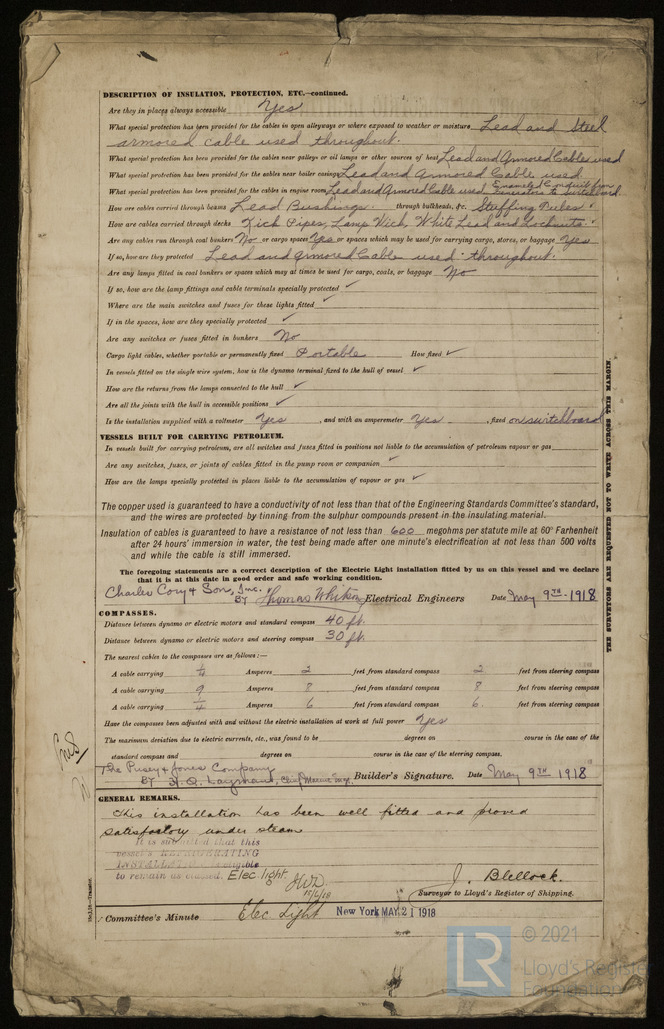 DESCRIPTION OF INSULATION, PROTECTION, ETC.—continued.
Are they in places always accessible Yes
What special protection has been provided for the cables in open alleyways or where exposed to weather or moisture Lead and Steel
armored cable used throughout.
What special protection has been provided for the cables near galleys or oil lamps or other sources of heat Lead and Armored Cables used
What special protection has been provided for the cables near boiler casings Lead and Armored Cable used.
What special protection has been provided for the cables in engine room Lead and Armored Cable used Enameled Conduit from Generators to switchboard.
How are cables carried through beams Lead Bushings. through bulkheads, &c. Stuffing Tubes ✓
How are cables carried through decks Kick Pipes, Lamp Wick, White Lead and Locknuts. ✓
Are any cables run through coal bunkers No or cargo spaces Yes or spaces which may be used for carrying cargo, stores, or baggage Yes
If so, how are they protected Lead and Armored Cable used throughout.
Are any lamps fitted in coal bunkers or spaces which may at times be used for cargo, coals, or baggage No
If so, how are the lamp fittings and cable terminals specially protected ✓
Where are the main switches and fuses for these lights fitted ✓
If in the spaces, how are they specially protected ✓
Are any switches or fuses fitted in bunkers No
Cargo light cables, whether portable or permanently fixed Portable How fixed ✓
In vessels fitted on the single wire system, how is the dynamo terminal fixed to the hull of vessel ✓
How are the returns from the lamps connected to the hull ✓
Are all the joints with the hull in accessible positions ✓
Is the installation supplied with a voltmeter Yes , and with an amperemeter Yes , fixed on switchboard
VESSELS BUILT FOR CARRYING PETROLEUM.
In vessels built for carrying petroleum, are all switches and fuses fitted in positions not liable to the accumulation of petroleum vapour or gas
Are any switches, fuses, or joints of cables fitted in the pump room or companion ✓
How are the lamps specially protected in places liable to the accumulation of vapour or gas ✓
The copper used is guaranteed to have a conductivity of not less than that of the Engineering Standards Committee's standard,
and the wires are protected by tinning from the sulphur compounds present in the insulating material.
Insulation of cables is guaranteed to have a resistance of not less than 600 megohms per statute mile at 60° Farhenheit
after 24 hours' immersion in water, the test being made after one minute's electrification at not less than 500 volts
and while the cable is still immersed.
The foregoing statements are a correct description of the Electric Light installation fitted by us on this vessel and we declare
that it is at this date in good order and safe working condition.
Charles Cory & Son, Inc.
BY Thomas Whiting Electrical Engineers Date May 9TH-1918
COMPASSES.
Distance between dynamo or electric motors and standard compass 40 ft.
Distance between dynamo or electric motors and steering compass 30 ft.
The nearest cables to the compasses are as follows:—
A cable carrying 1/4 Amperes 2 feet from standard compass 2 feet from steering compass
A cable carrying 9 Amperes 8 feet from standard compass 8 feet from steering compass
A cable carrying 1/4 Amperes 6 feet from standard compass 6. feet from steering compass
Have the compasses been adjusted with and without the electric installation at work at full power Yes
The maximum deviation due to electric currents, etc., was found to be degrees on course in the case of the
standard compass and degrees on course in the case of the steering compass.
The Pusey & Jones Company
BY H. Q. Laymans, Chief Marine Eng. Builder's Signature. Date May 9TH 1918
GENERAL REMARKS.
This installation has been well fitted and proved
satisfactory under steam
It is submitted that this
vessel's REFRIGERATING
INSTALLATION is eligible
to remain as classed. Elec light.
JWD
15/6/18
J. Blellock.
Surveyor to Lloyd's Register of Shipping.
Committee's Minute Elec. Light New York MAY 21 1918
THE SURVEYORS ARE REQUESTED NOT TO WRITE ACROSS THIS MARGIN.
LR
© 2021
Lloyd's Register
Foundation